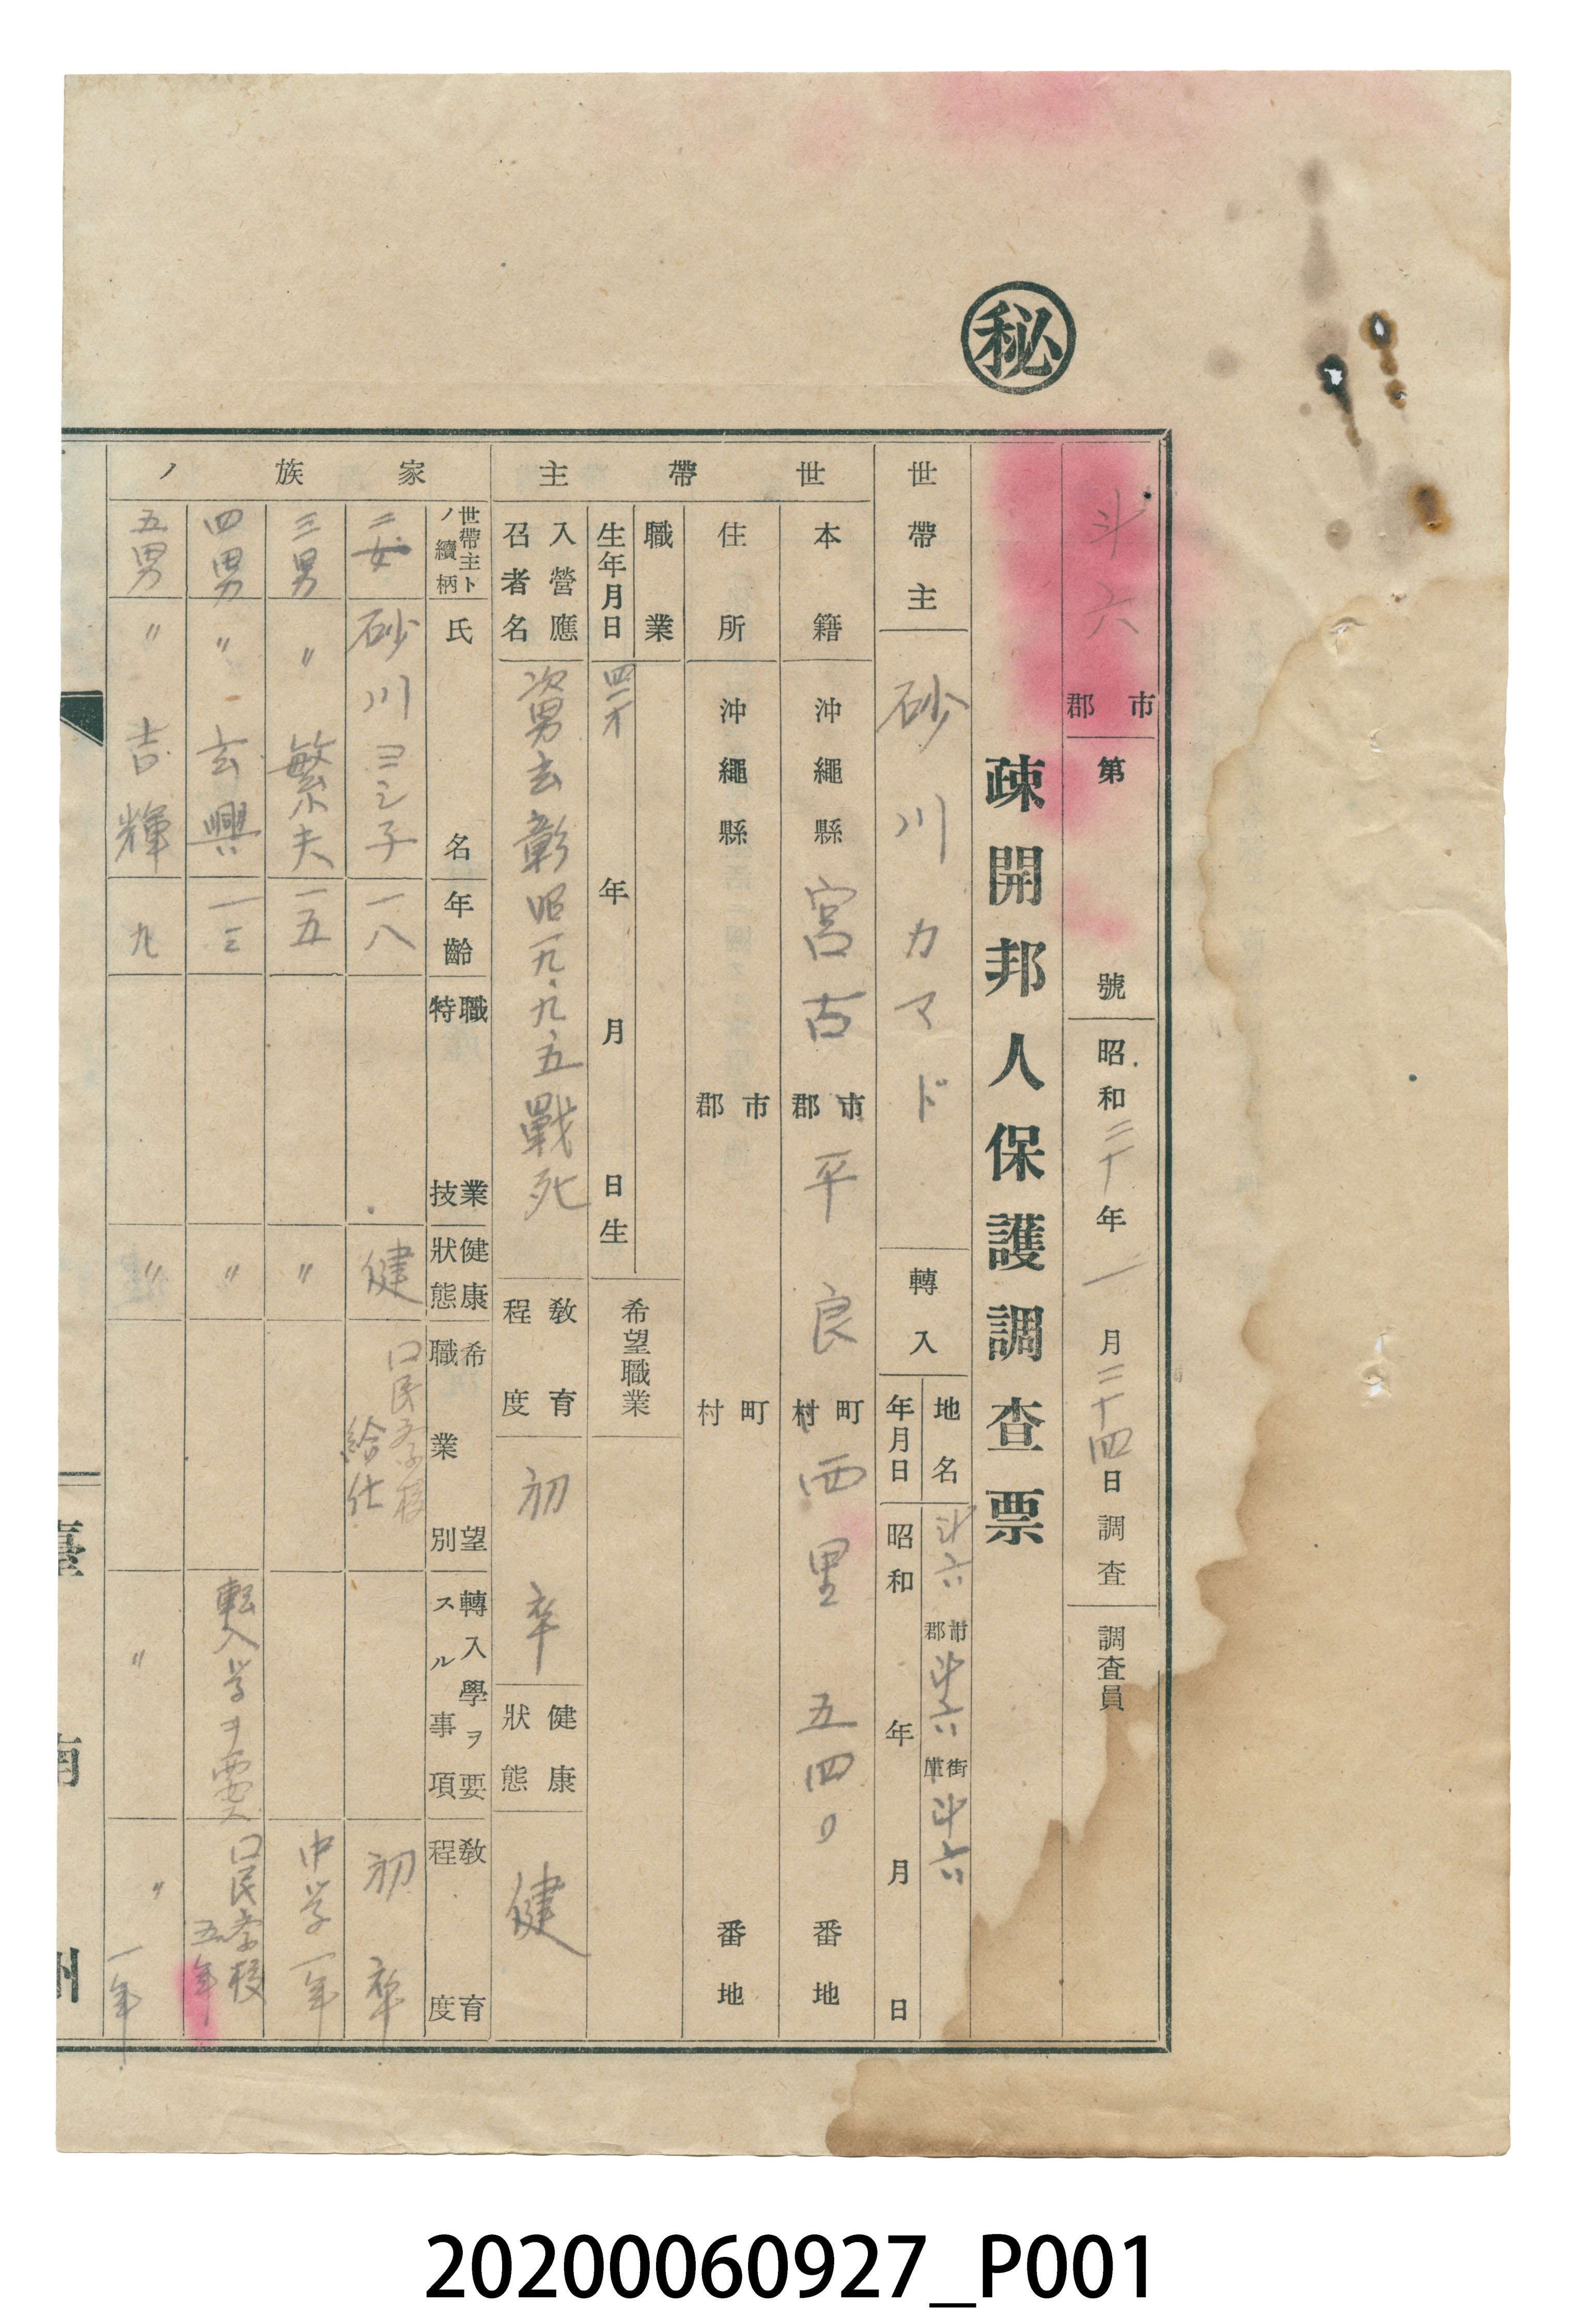 秘
斗六 市郡 第 號 昭和二十年一月二十四日調査 調査員
疎開邦人保護調査票
世帶主 砂川カマド 轉入 地名 斗六市郡斗六街庄斗六
年月日 昭和 年 月 日
世帶主
本籍 沖繩縣宮古市郡平良町村西里五四〇番地
住所 沖繩縣 市郡 町村 番地
職業
生年月日 四一才 年 月 日生 希望職業
入營應召者名 次男玄彰昭一九、九、五戰死 教育程度 初卒 健康狀態 健
家族ノ
世帶主トノ續柄 氏名 年齡 職業特技 健康狀態 希望職業別 轉入學ヲ要スル事項 教育程度
二女 砂川ヨシ子 一八 健 口民学校給仕 初卒
三男 〃 繁夫 一五 〃 中学一年
四男 〃 玄興 一三 〃 転入学ヲ要ス 口民学校五年
五男 〃 吉輝 九 〃 〃 〃 一年
臺南州
20200060927_P001